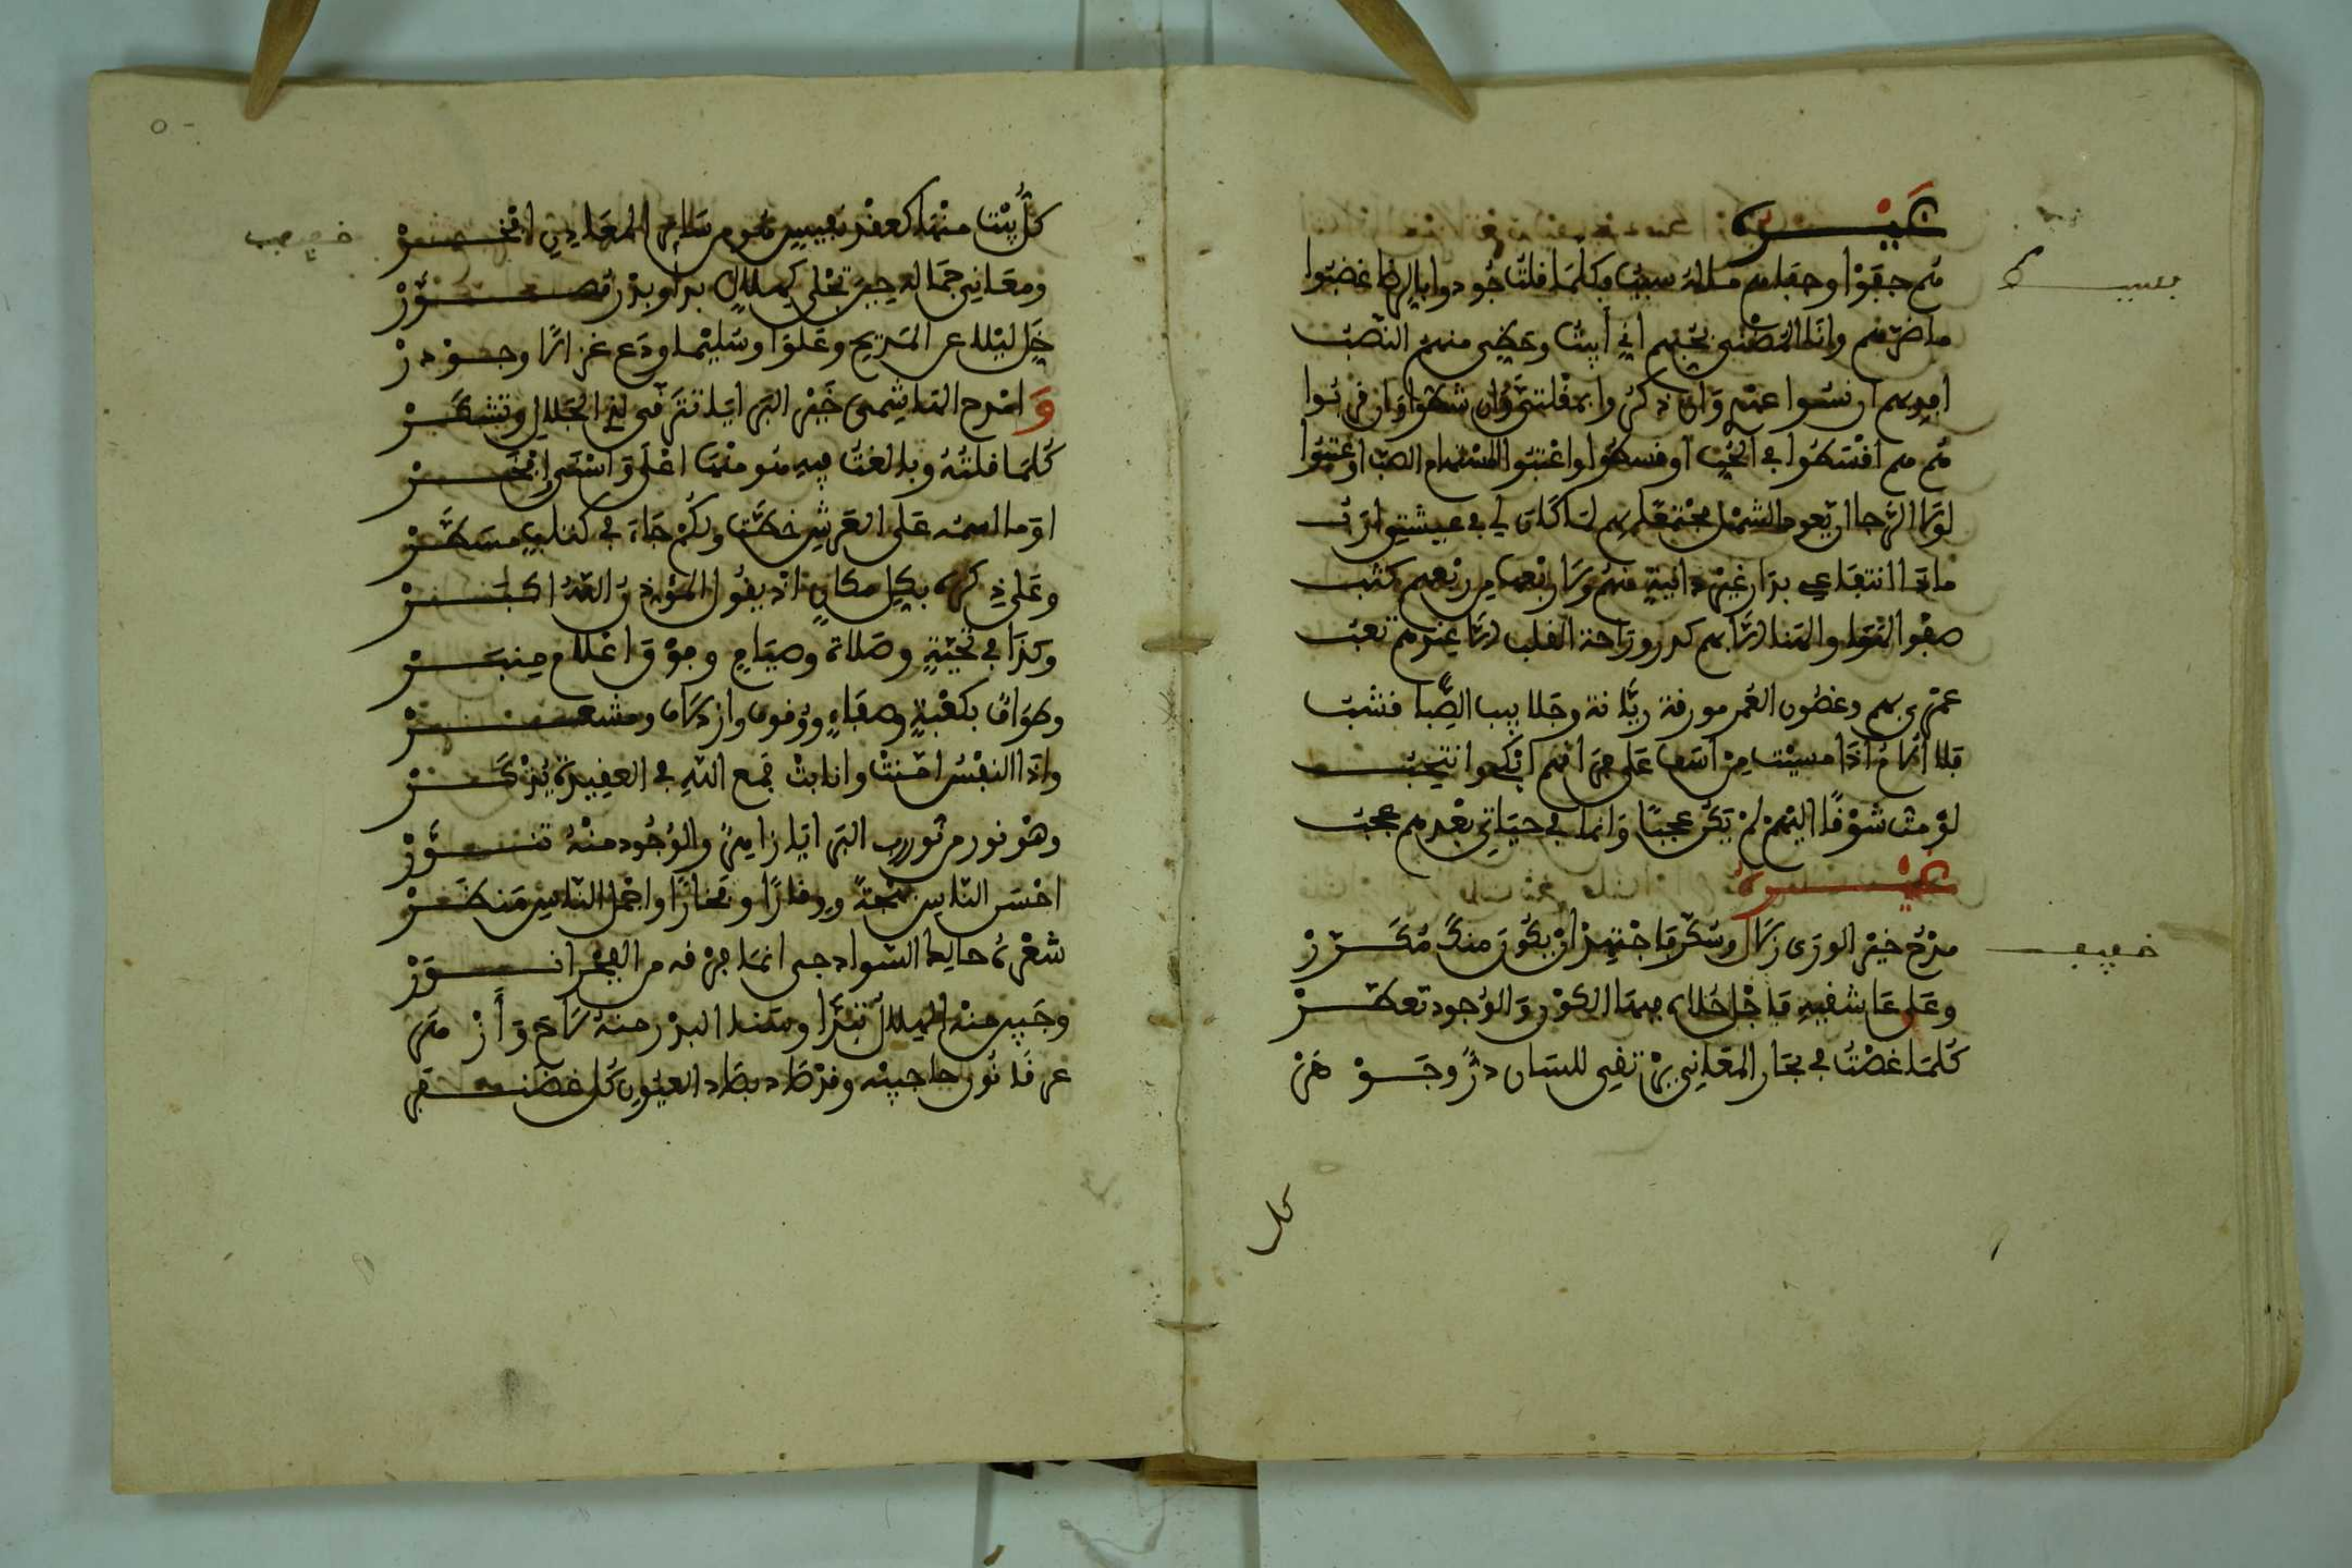 غيره
بسيط
هم جفوا وجفاهم ماله سبب وكلما قلت جودوا بالرضا غضبوا
ما ضرهم وانا المضنى بحبهم اني أبيت وحظي منهم النصب
افديهم ان نسوا عهدي وان ذكروا بمقلتي وان شطوا وان قربوا
هم هم اقسطوا في الحب أو قسطوا واعتبوا المستهام الصب او عتبوا
لولا الرجا ان يعود الشمل مجتمعا بهم لما كان لي في عيشتي ارب
ماذا انتفاعي بدار غير دانية منهم ولا ربعها من ربعهم كثب
صفو الهوا والهنا الا بهم كدر وراحة القلب الا غيرهم تعب
عهدي بهم وغصون العمر مورقة ريانة وجلابيب الصبا قشب
فلا ألام اذا امسيت من أسف على فراقهم ابكي وانتحب
لو مت شوقا اليهم لم يكن عجبا وانما في حياتي بعدهم عجب
غيره
خفيف
مدح خير الورى زلال وسكر فاجتهد ان يكون منك مكرر
وعلى عاشقيه فاجل حلاه فبها الكون والوجود تعطر
كلما غصت في بحار المعاني برزت في للسان در وجوهر
كل
كل بيت منها كعقد نفيس هو من سائر المعادن افخر
خفيف
ومعاني جماله حين تجلى كهلال بدا وبدر مصور
خل ليلى عن المديح وعلوا وسليما ودع غزالا وجودر
وامدح الهاشمي خير البرايا تترقى لذي الجلال وتشكر
كلما قلته وبالغت فيه هو منها اعلى واسمى وافخر
او ما اسمه على العرش خطت ولكم جاء في كتاب مسطر
وعلى ذكره بكل مكان اذ يقول المؤذن الله اكبر
وكذا في تحية وصلاة وصيام وفوق اعلام منبر
وطواف بكعبة وصفاه ووقوف واركان ومشعر
واذا النفس امنت وانابت فمع الله في العقيدة يذكر
وهو نور من نور رب البرايا زاهي والوجود منه تنور
احسن الناس بهجة ووقارا وفخارا واجمل الناس منظر
شعره حالك السواد دجى انما فرقه من الفجر انور
وجبيه منه الهلال تبدا وسنا البدر منه لاح وأزهر
عرفا نور حاجبيه وقرطاه بطاد العيون كل غضنفر